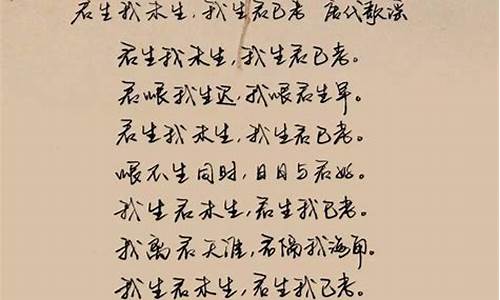 君生我未生，我生君已老 唐代歌谣
君生我未生，我生君已老。
君恨我生迟，我恨君生早。
君生我未生，我生君已老。
恨不生同时，日日与君好。
我生君未生，君生我已老。
我离君天涯，君隔我海角。
我生君未生，君生我已老。